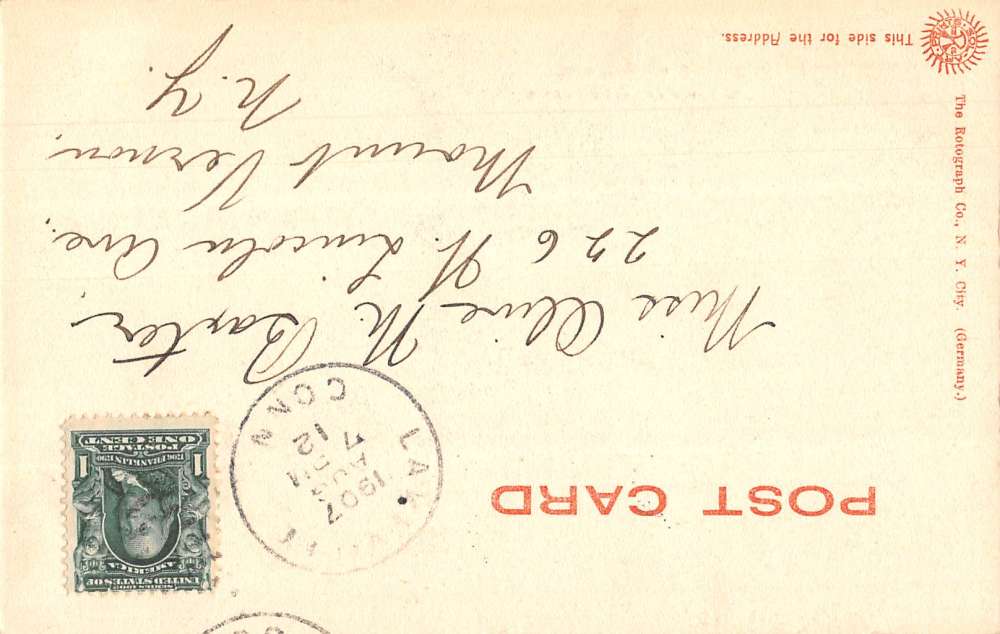 POST CARD
SERIES 1902
UNITED STATES OF
AMERICA
1706 FRANKLIN 1790
1 1
POSTAGE
ONE CENT
CONN
7
12
AUG
1907
Miss Olive M. Baxter
226 W. Lincoln Ave.
Mount Vernon
N.Y.
This side for the Address.
The Rotograph Co., N. Y. City. (Germany.)